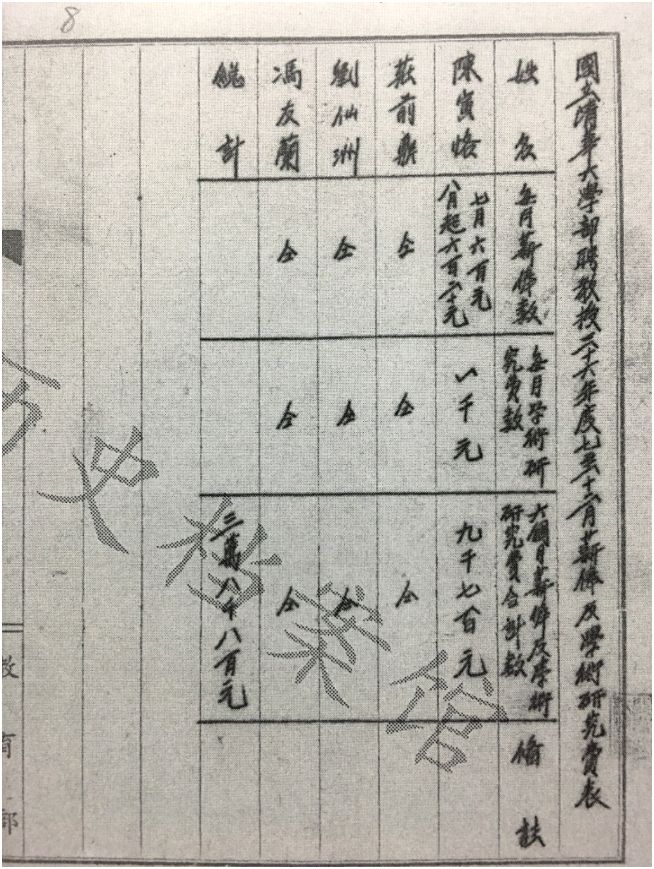 8
國立清華大學部聘教授三十六年度七至十二月份薪俸及學術研究費表
姓名 每月薪俸數 每月學術研究費數 六個月薪俸及學術研究費合計數 備攷
陳寅恪 七月六百元 八月起六百二十元 一千元 九千七百元
莊前鼎 仝 仝 仝
劉仙洲 仝 仝 仝
馮友蘭 仝 仝 仝
總計 三萬八千八百元
教育部
史档案馆